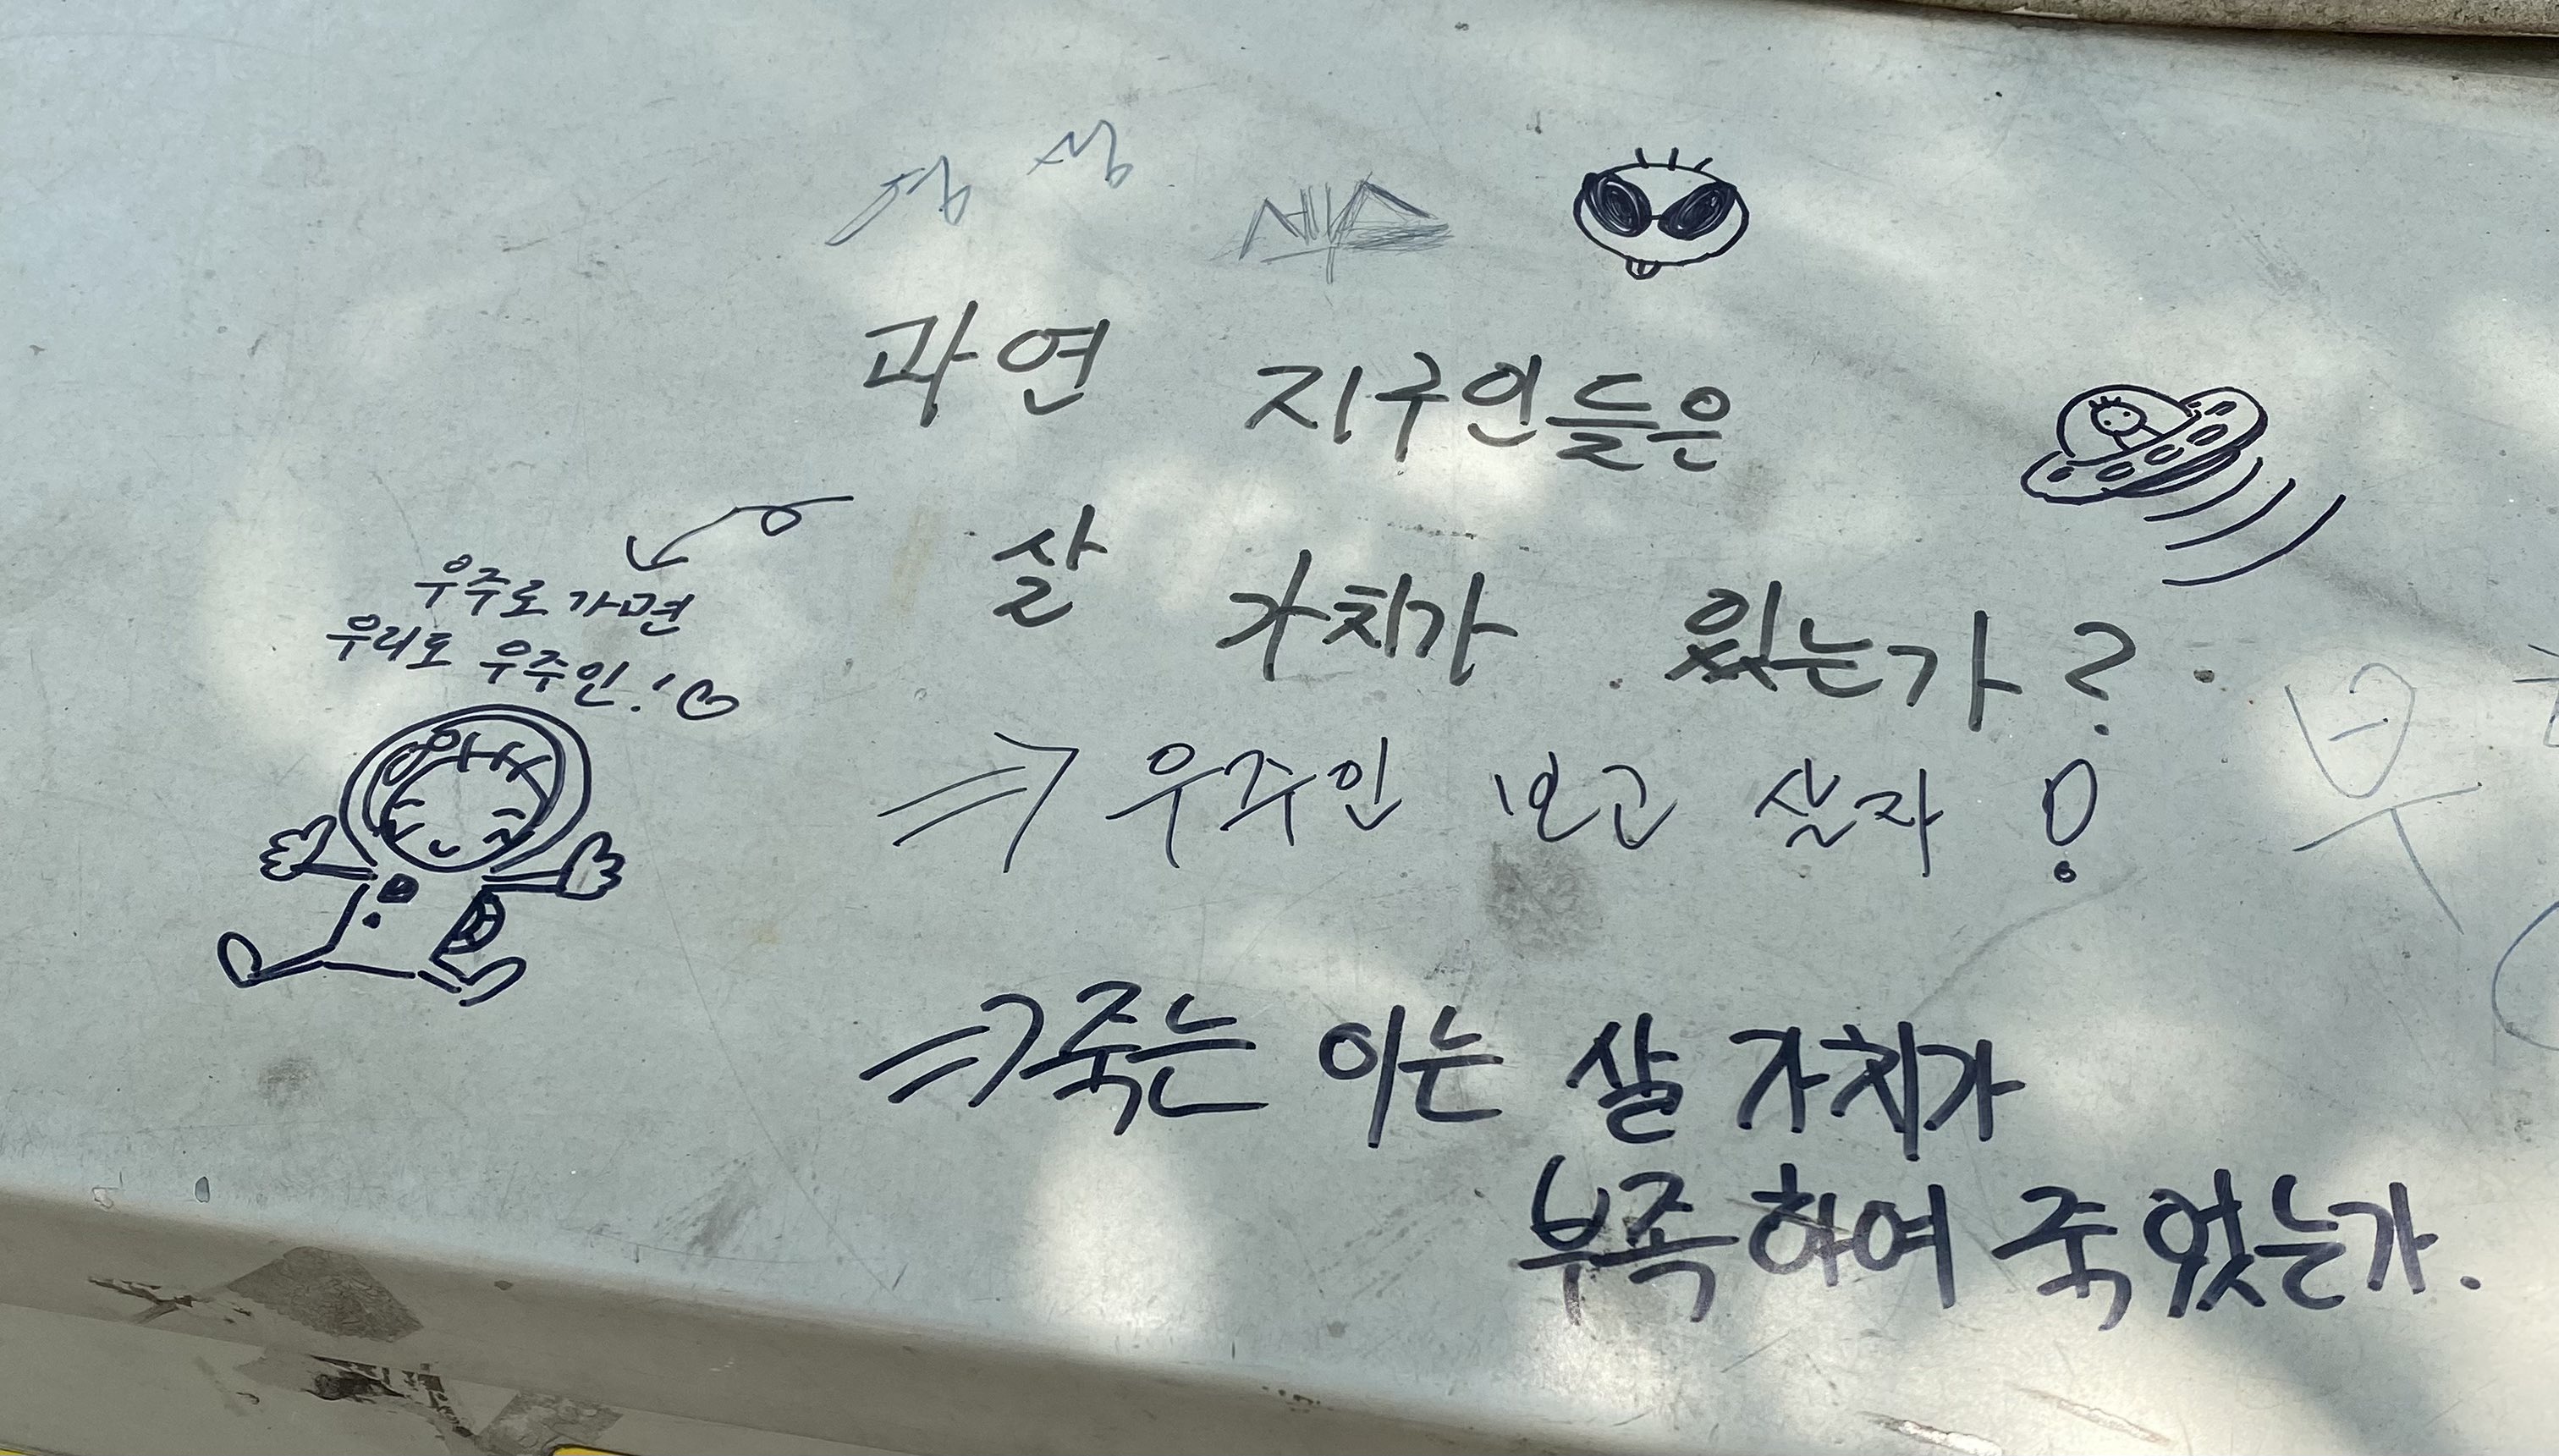 과연 지구인들은
살 가치가 있는가?
우주로 가면
우리도 우주인!
⇒ 우주인 보고 살자!
⇒ 죽는 이는 살 가치가
부족하여 죽었는가.